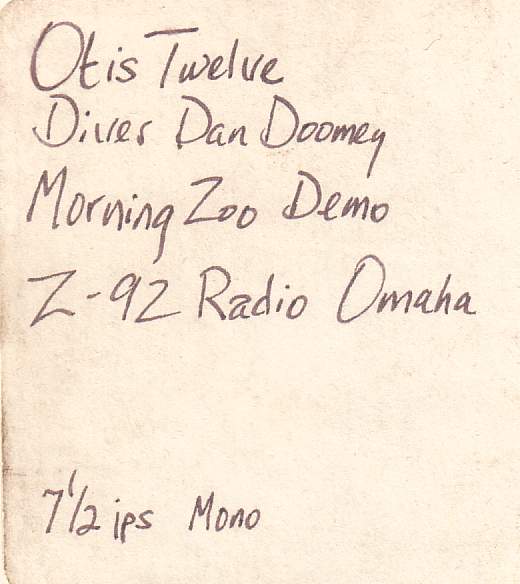 Otis Twelve
Diver Dan Doomey
Morning Zoo Demo
Z-92 Radio Omaha
7 1/2 ips Mono